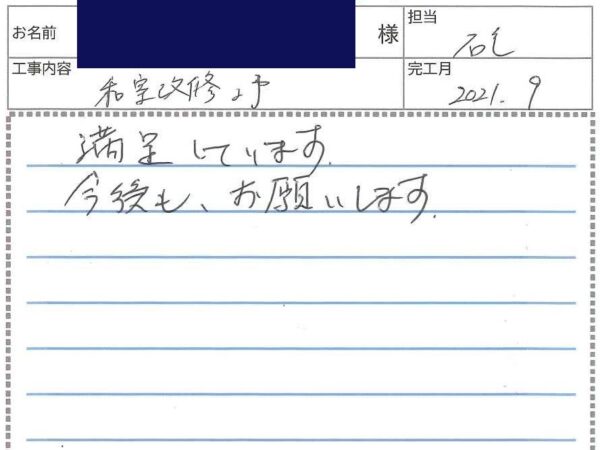 お名前 様 担当
工事内容 和室改修工事 完工月 2021.9
満足しています.
今後も、お願いします.